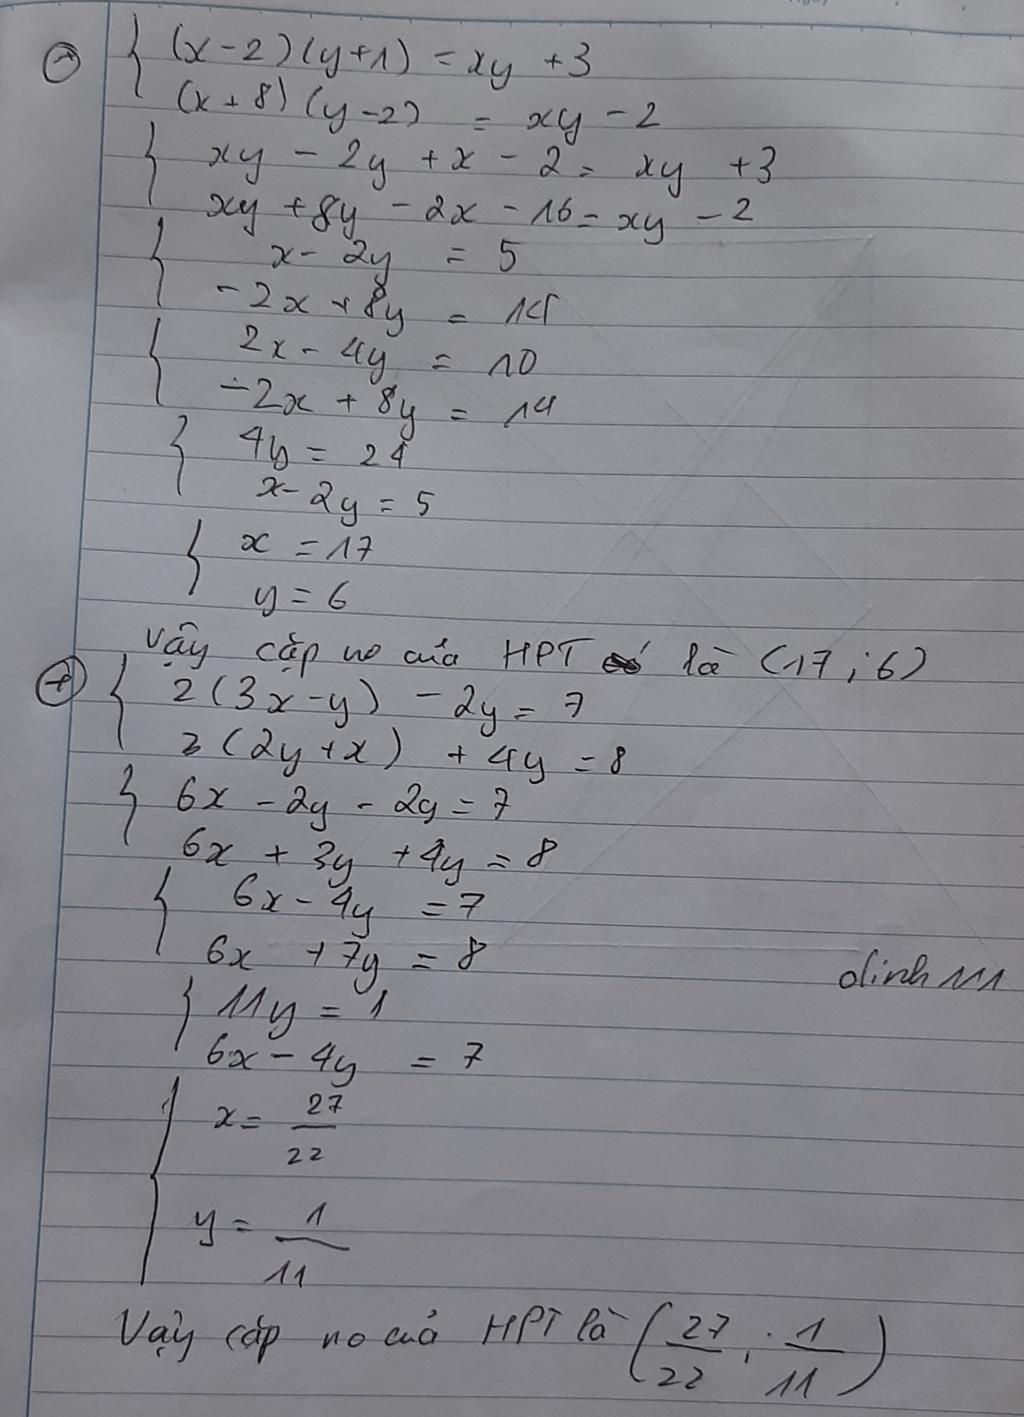 (x-2)(y+1) = xy +3
(x+8)(y-2) = xy -2
xy - 2y + x - 2 = xy +3
xy +8y - 2x - 16 = xy - 2
x - 2y = 5
-2x + 8y = 14
2x - 4y = 10
-2x + 8y = 14
4y = 24
x - 2y = 5
x = 17
y = 6
Vậy cặp no của HPT là (17 ; 6)
2(3x-y) - 2y = 7
3(2y+x) + 4y = 8
6x - 2y - 2y = 7
6x + 3y + 4y = 8
6x - 4y = 7
6x + 7y = 8
dinh 111
11y = 1
6x - 4y = 7
x = 27/22
y = 1/11
Vậy cặp no của HPT là (27/22 ; 1/11)